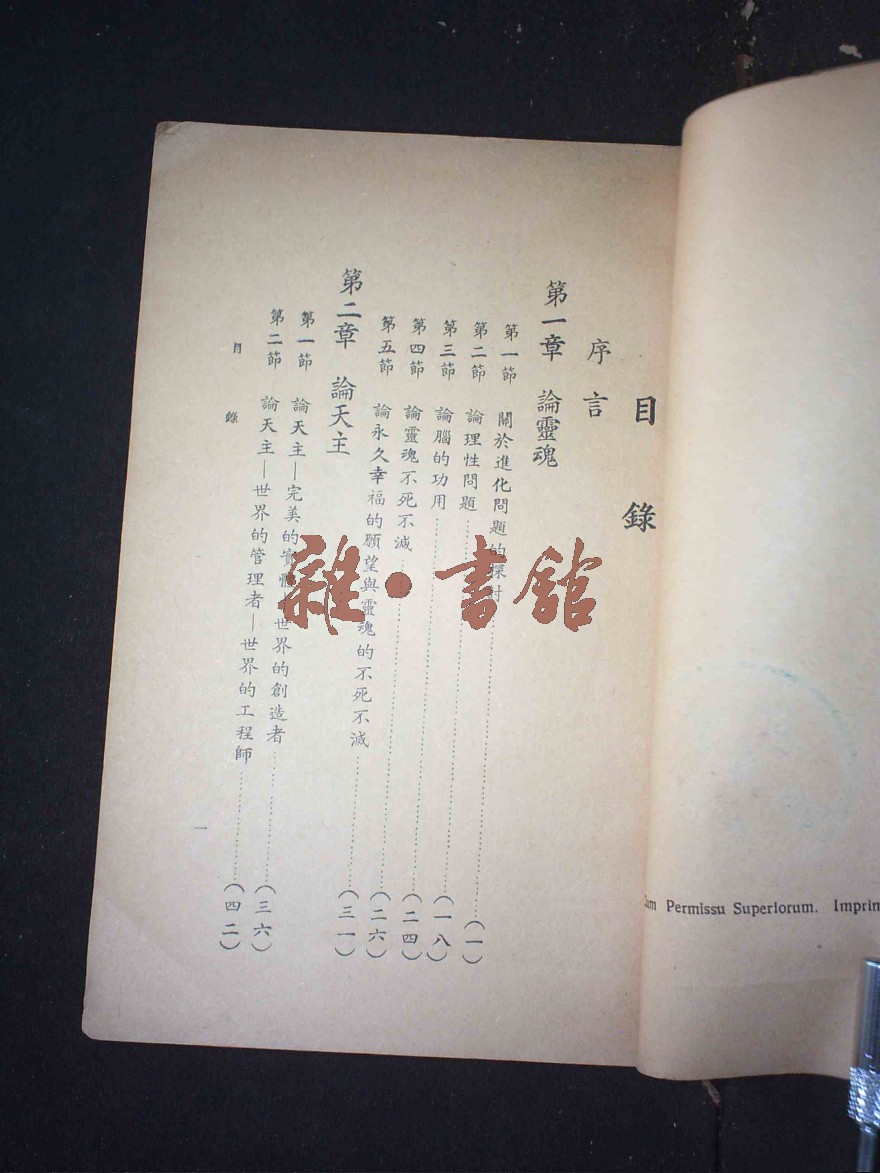 目錄
序言
第一章 論靈魂
第一節 關於進化問題的探討……(一)
第二節 論理性問題……(一八)
第三節 論腦的功用……(二四)
第四節 論靈魂不死不滅……(二六)
第五節 論永久幸福的願望與靈魂的不死不滅……(三一)
第二章 論天主
第一節 論天主—完美的實體—世界的創造者……(三六)
第二節 論天主—世界的管理者—世界的工程師……(四二)
目錄
一
Permissu Superiorum.
雜·書館